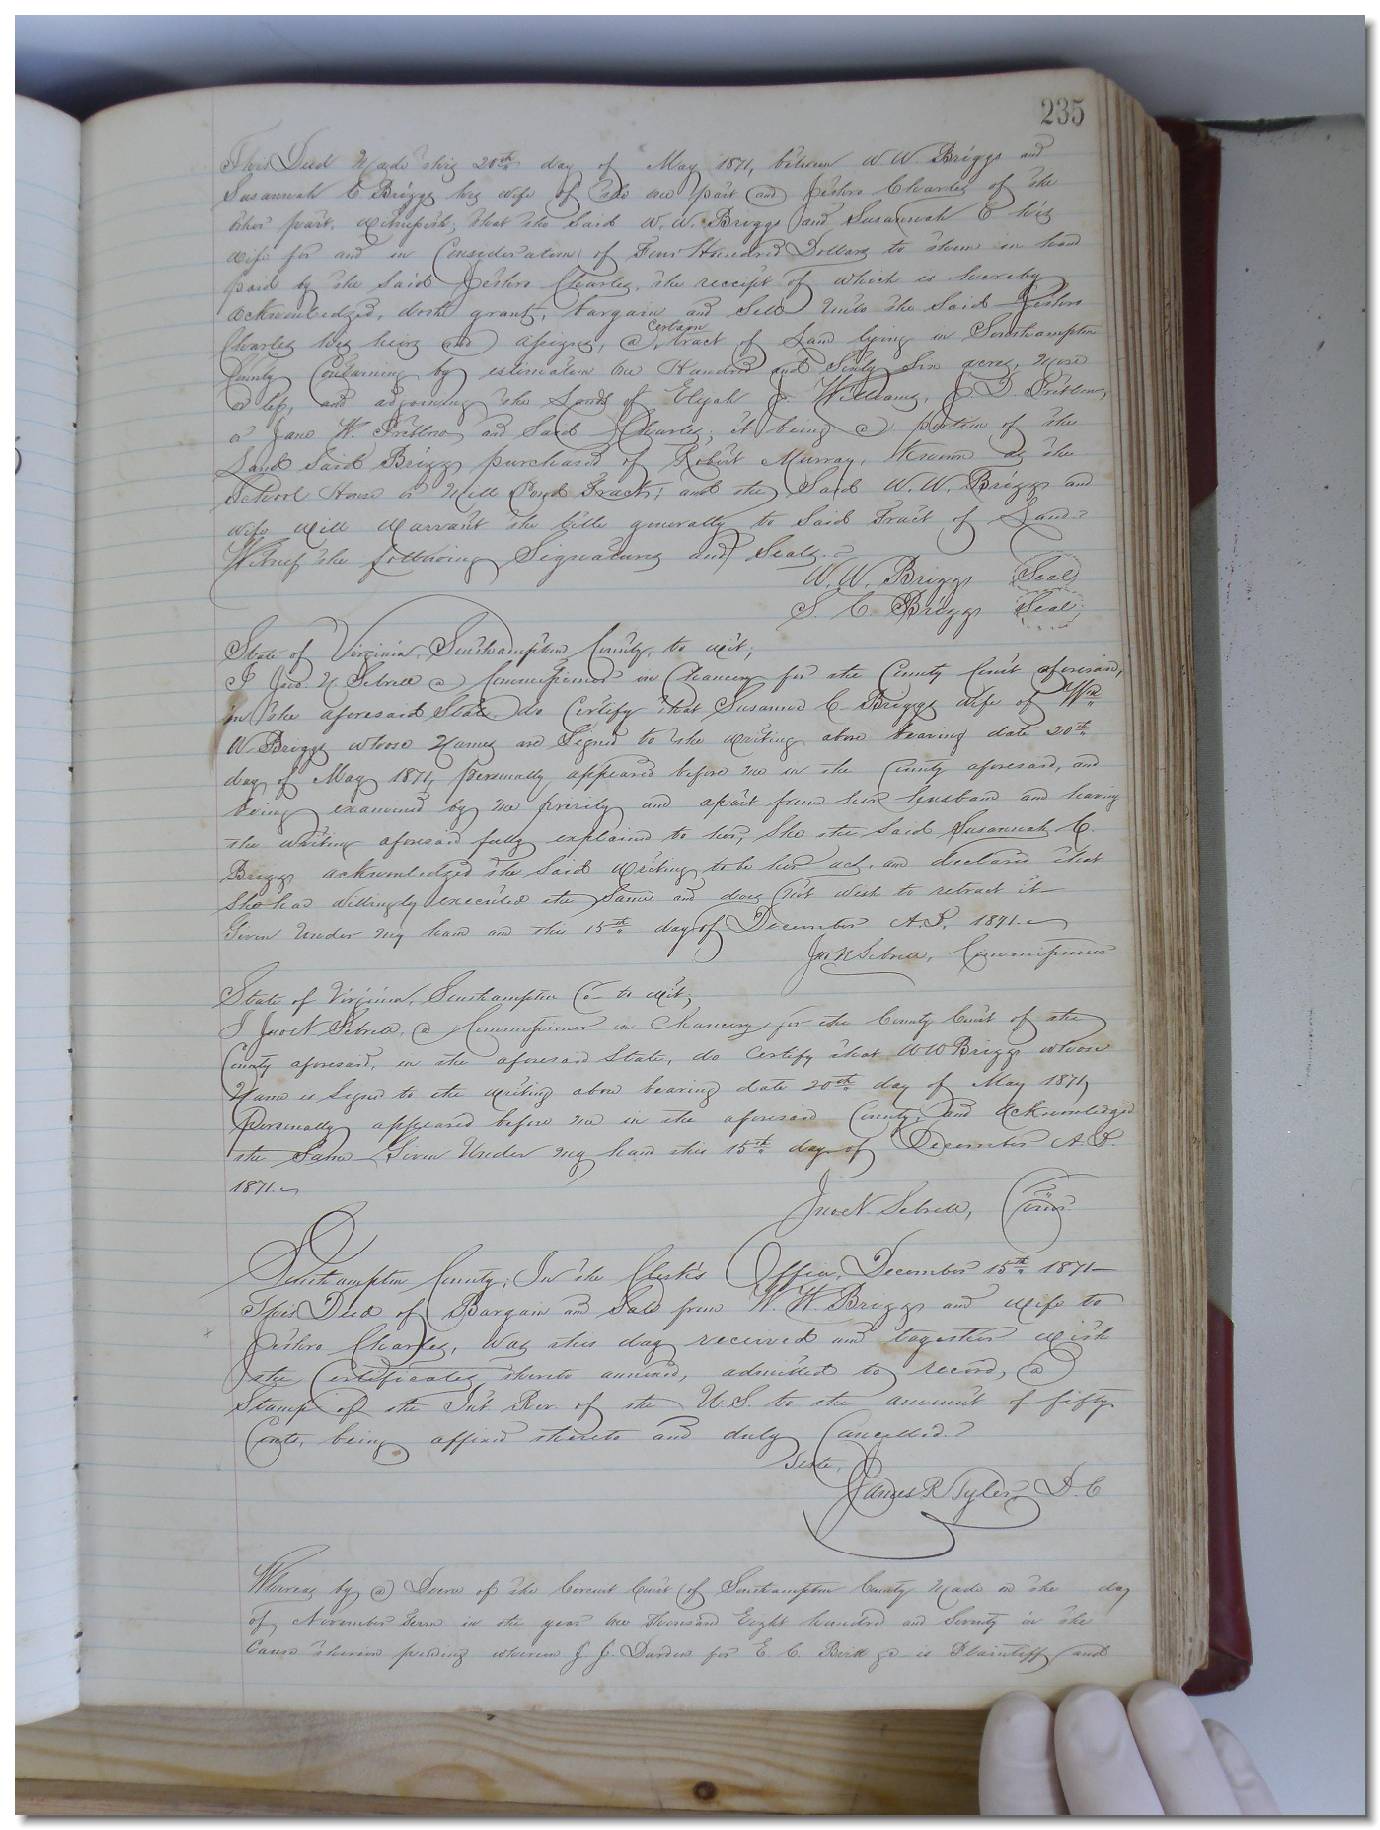 235
This Deed Made this 20th day of May 1871, between W W. Briggs and
Susannah C Briggs his wife of the one part and Jethro Charles of the
other part. Witnesseth, that the Said W. W. Briggs and Susannah C his
wife for and in Consideration of Four Hundred Dollars to them in hand
paid by the said Jethro Charles, the receipt of which is hereby
acknowledged, doth grant, bargain and Sell Unto the Said Jethro
Charles his heirs and assigns, a certain tract of Land lying in Southampton
County Containing by estimation One Hundred and Sixty Six acres, more
or less, and adjoining the Lands of Elijah J. Williams, J. D. Pretlow,
a Jane W. Pretlow and Said Charles; it being a portion of the
Land Said Briggs purchased of Robert Murray, Known as the
School House or Mill Pond Tract; and the Said W. W. Briggs and
wife will warrant the title generally to Said Tract of Land.
Witness the following Signatures and Seals.
W. W. Briggs Seal
S. C. Briggs Seal
State of Virginia, Southampton County, to wit;
I Jno. N. Sebrell a Commissioner in Chancery for the County Court aforesaid,
in the aforesaid State do Certify that Susannah C Briggs wife of Wm
W Briggs whose Names are Signed to the writing above bearing date 20th
day of May 1871, personally appeared before me in the County aforesaid, and
being examined by me privily and apart from her husband and having
the writing aforesaid fully explained to her, She the Said Susannah C.
Briggs acknowledged the Said writing to be her act, and declared that
She had willingly executed the Same and does not wish to retract it
Given Under my hand on this 15th day of December A.D. 1871.
Jno N Sebrell, Commissioner
State of Virginia, Southampton Co to wit;
I Jno N Sebrell, a Commissioner in Chancery for the County Court of the
County aforesaid, in the aforesaid State, do Certify that W W Briggs whose
Name is Signed to the writing above bearing date 20th day of May 1871,
Personally appeared before me in the aforesaid County, and Acknowledged
the Same Given Under my hand this 15th day of December A.D.
1871.
Jno N. Sebrell, Comr
Southampton County, In the Clerk's Office, December 15th 1871
This Deed of Bargain and Sale from W. W. Briggs and wife to
Jethro Charles, was this day received and together with
the Certificates thereto annexed, admitted to record, a
Stamp of the Int Rev. of the U.S. to the amount of fifty
Cents, being affixed thereto and duly Cancelled.
Teste,
James R Tyler, D. C
Whereas by a Decree of the Circuit Court of Southampton County Made on the day
of November Term in the year One thousand Eight hundred and Seventy in the
Cause therein pending wherein J. J. Darden for E. C. Britt is Plaintiff and